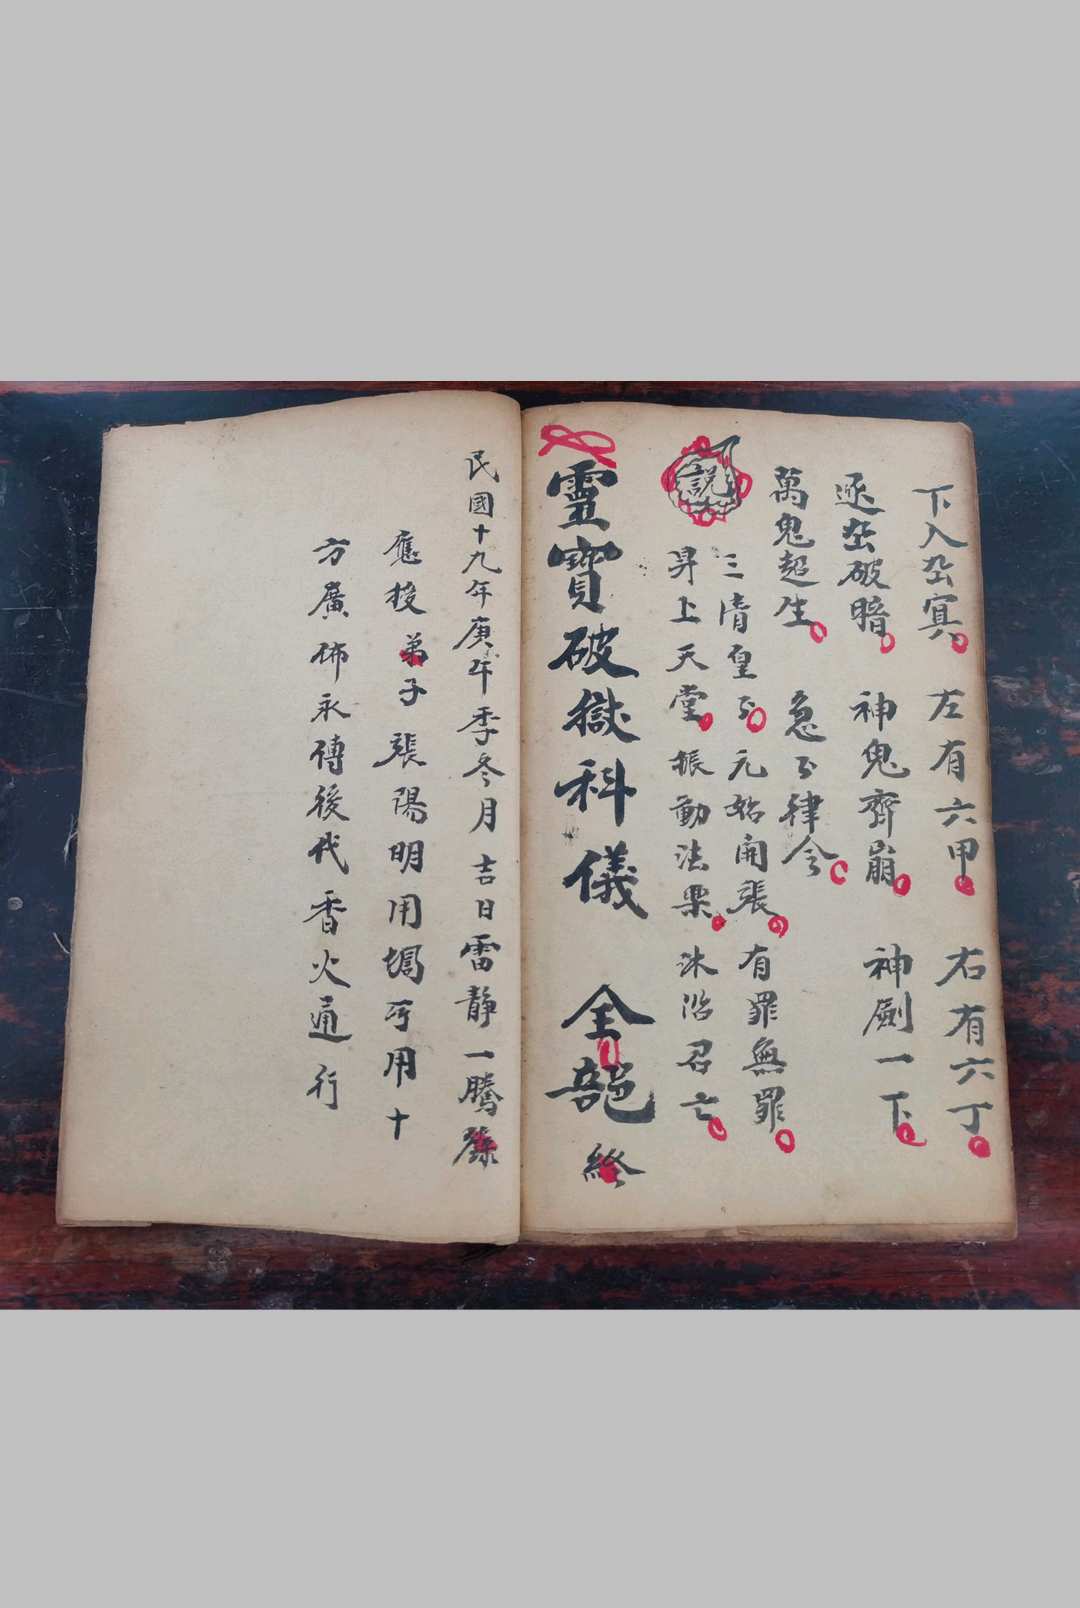 下入幽冥 左有六甲 右有六丁
逐幽破暗 神鬼齊崩 神劍一下
萬鬼超生 急々律令
說
三清皇々 元始開張 有罪無罪
昇上天堂 振動法界 沐浴召亡
靈寶破獄科儀 全部 終
民國十九年庚午季冬月吉日雷靜一騰錄
應授弟子張陽明用塲可用十
方廣佈永傳後代香火通行